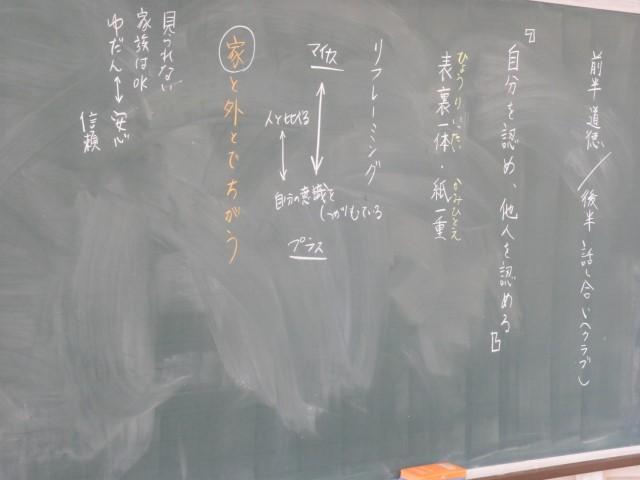 前半 道徳／後半 話し合い
『自分を認め、他人を認める』
ひょうりいったい かみひとえ
表裏一体・紙一重
リフレーミング
マイナス
人と比べる
自分の意識を
しっかりもっている
プラス
家と外とでちがう
見られない
家族はOK
ゆだん↔安心
信頼